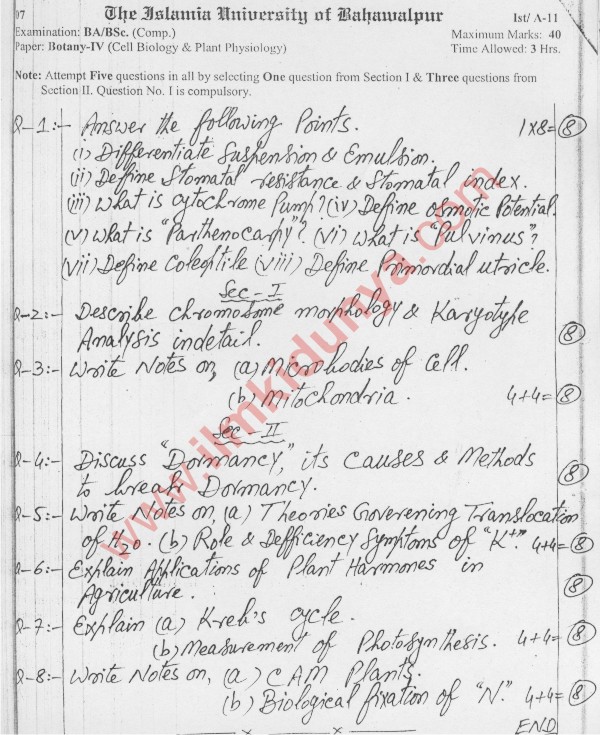 07 The Islamia University of Bahawalpur Ist/ A-11
Examination: BA/BSc. (Comp.) Maximum Marks: 40
Paper: Botany-IV (Cell Biology & Plant Physiology) Time Allowed: 3 Hrs.
Note: Attempt Five questions in all by selecting One question from Section I & Three questions from
Section II. Question No. I is compulsory.
Q-1:- Answer the following Points. 1x8=8
(i) Differentiate Suspension & Emulsion.
(ii) Define Stomatal resistance & Stomatal index.
(iii) What is cytochrome Pump? (iv) Define osmotic Potential.
(v) What is "Parthenocarpy"? (vi) What is "Pulvinus"?
(vii) Define Coleoptile (viii) Define Primordial utricle.
Sec-I
Q-2:- Describe chromosome morphology & Karyotype
Analysis indetail. 8
Q-3:- Write Notes on, (a) Microbodies of Cell.
(b) Mitochondria. 4+4=8
Sec-II
Q-4:- Discuss "Dormancy", its causes & Methods
to break Dormancy. 8
Q-5:- Write Notes on, (a) Theories Governing Translocation
of H2O. (b) Role & Defficiency Symptoms of "K+". 4+4=8
Q-6:- Explain Applications of Plant Harmones in
Agriculture. 8
Q-7:- Explain (a) Kreb's cycle.
(b) Measurement of Photosynthesis. 4+4=8
Q-8:- Write Notes on, (a) CAM Plants.
(b) Biological fixation of "N". 4+4=8
x x END
www.ilmkidunya.com